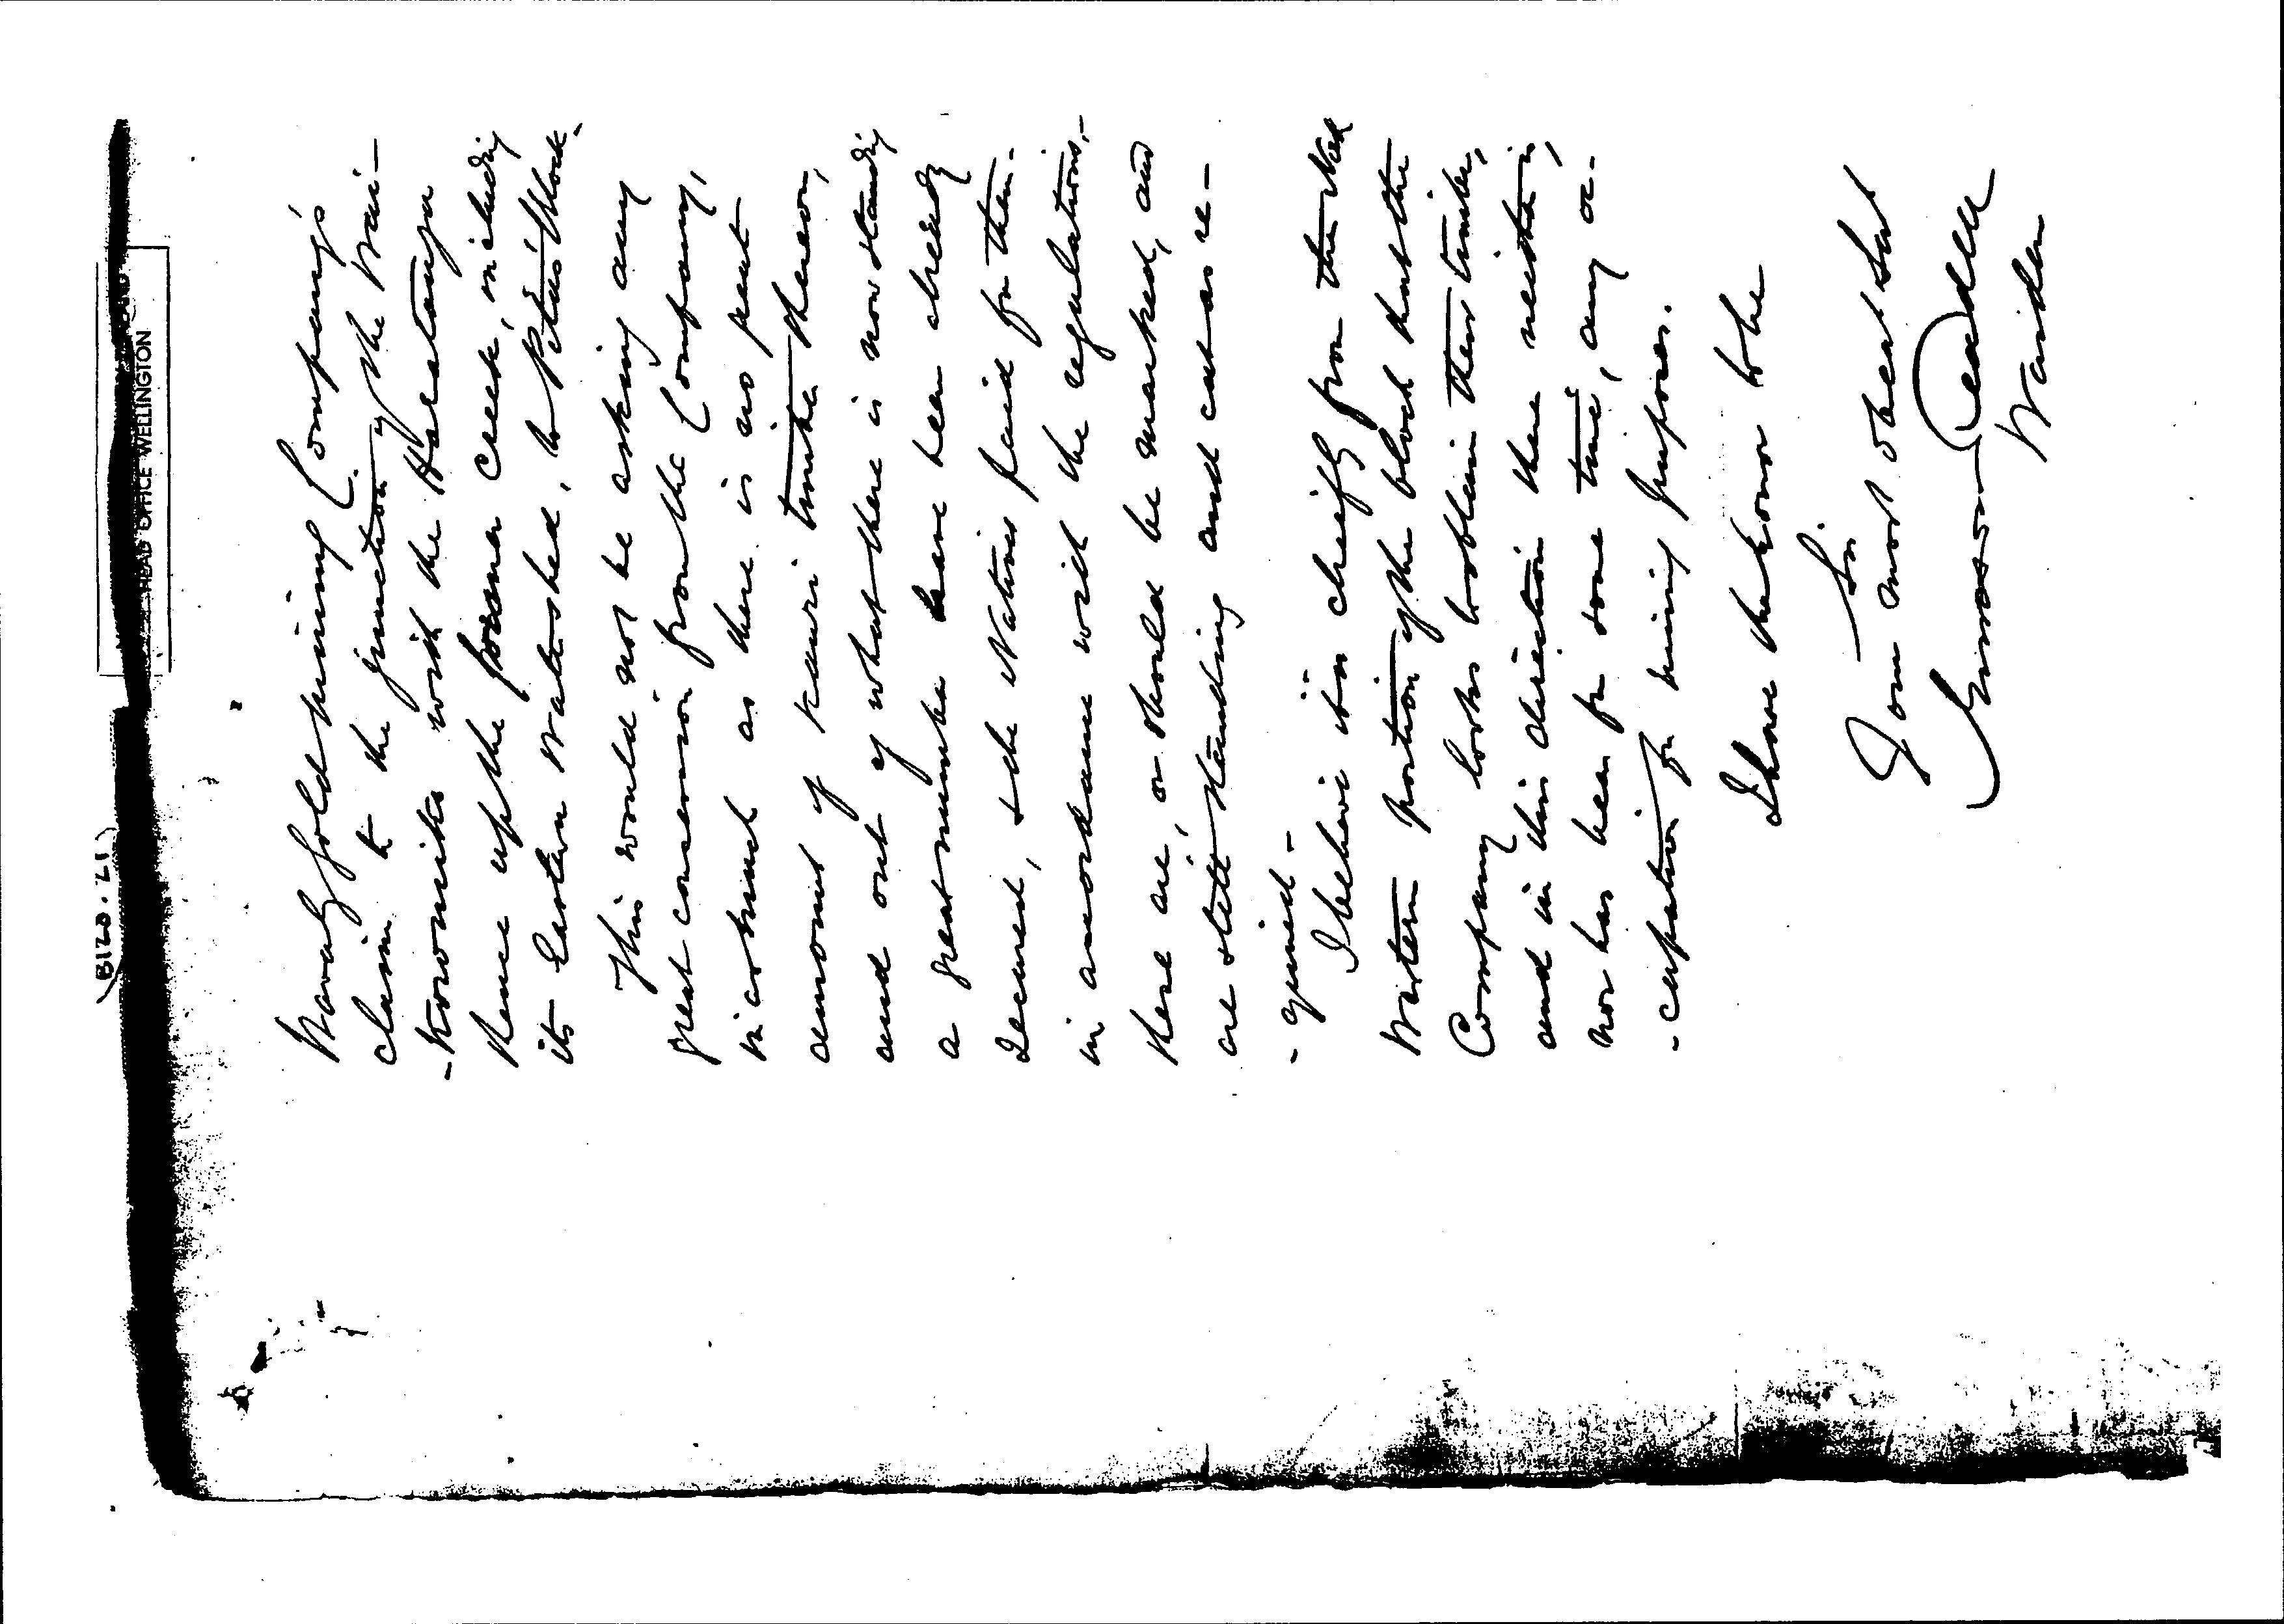 (B123.21)
HEAD OFFICE WELLINGTON
Gold Mining Company's
claim to the junction of the Wai-
-kawa with the
thence up the former Creek, including
its Eastern Watershed, to block.
This would not be asking any
great concession from the Company,
in as much as there is no great
amount of kauri timber thereon,
and out of what there is now standing
a great number have been already
secured, & the Natives paid for them.
in accordance with the regulations,-
these are, or should be marked, and
are still standing and can as re-
-quired.-
I believe it is chiefly from the
Western portion of the block that the
Company looks to obtain their timber,
and in this direction there neither is,
nor has been for some time, any oc-
-cupation for mining purposes.
I have the honor to be
Sir
Your most obed Sert
Warden